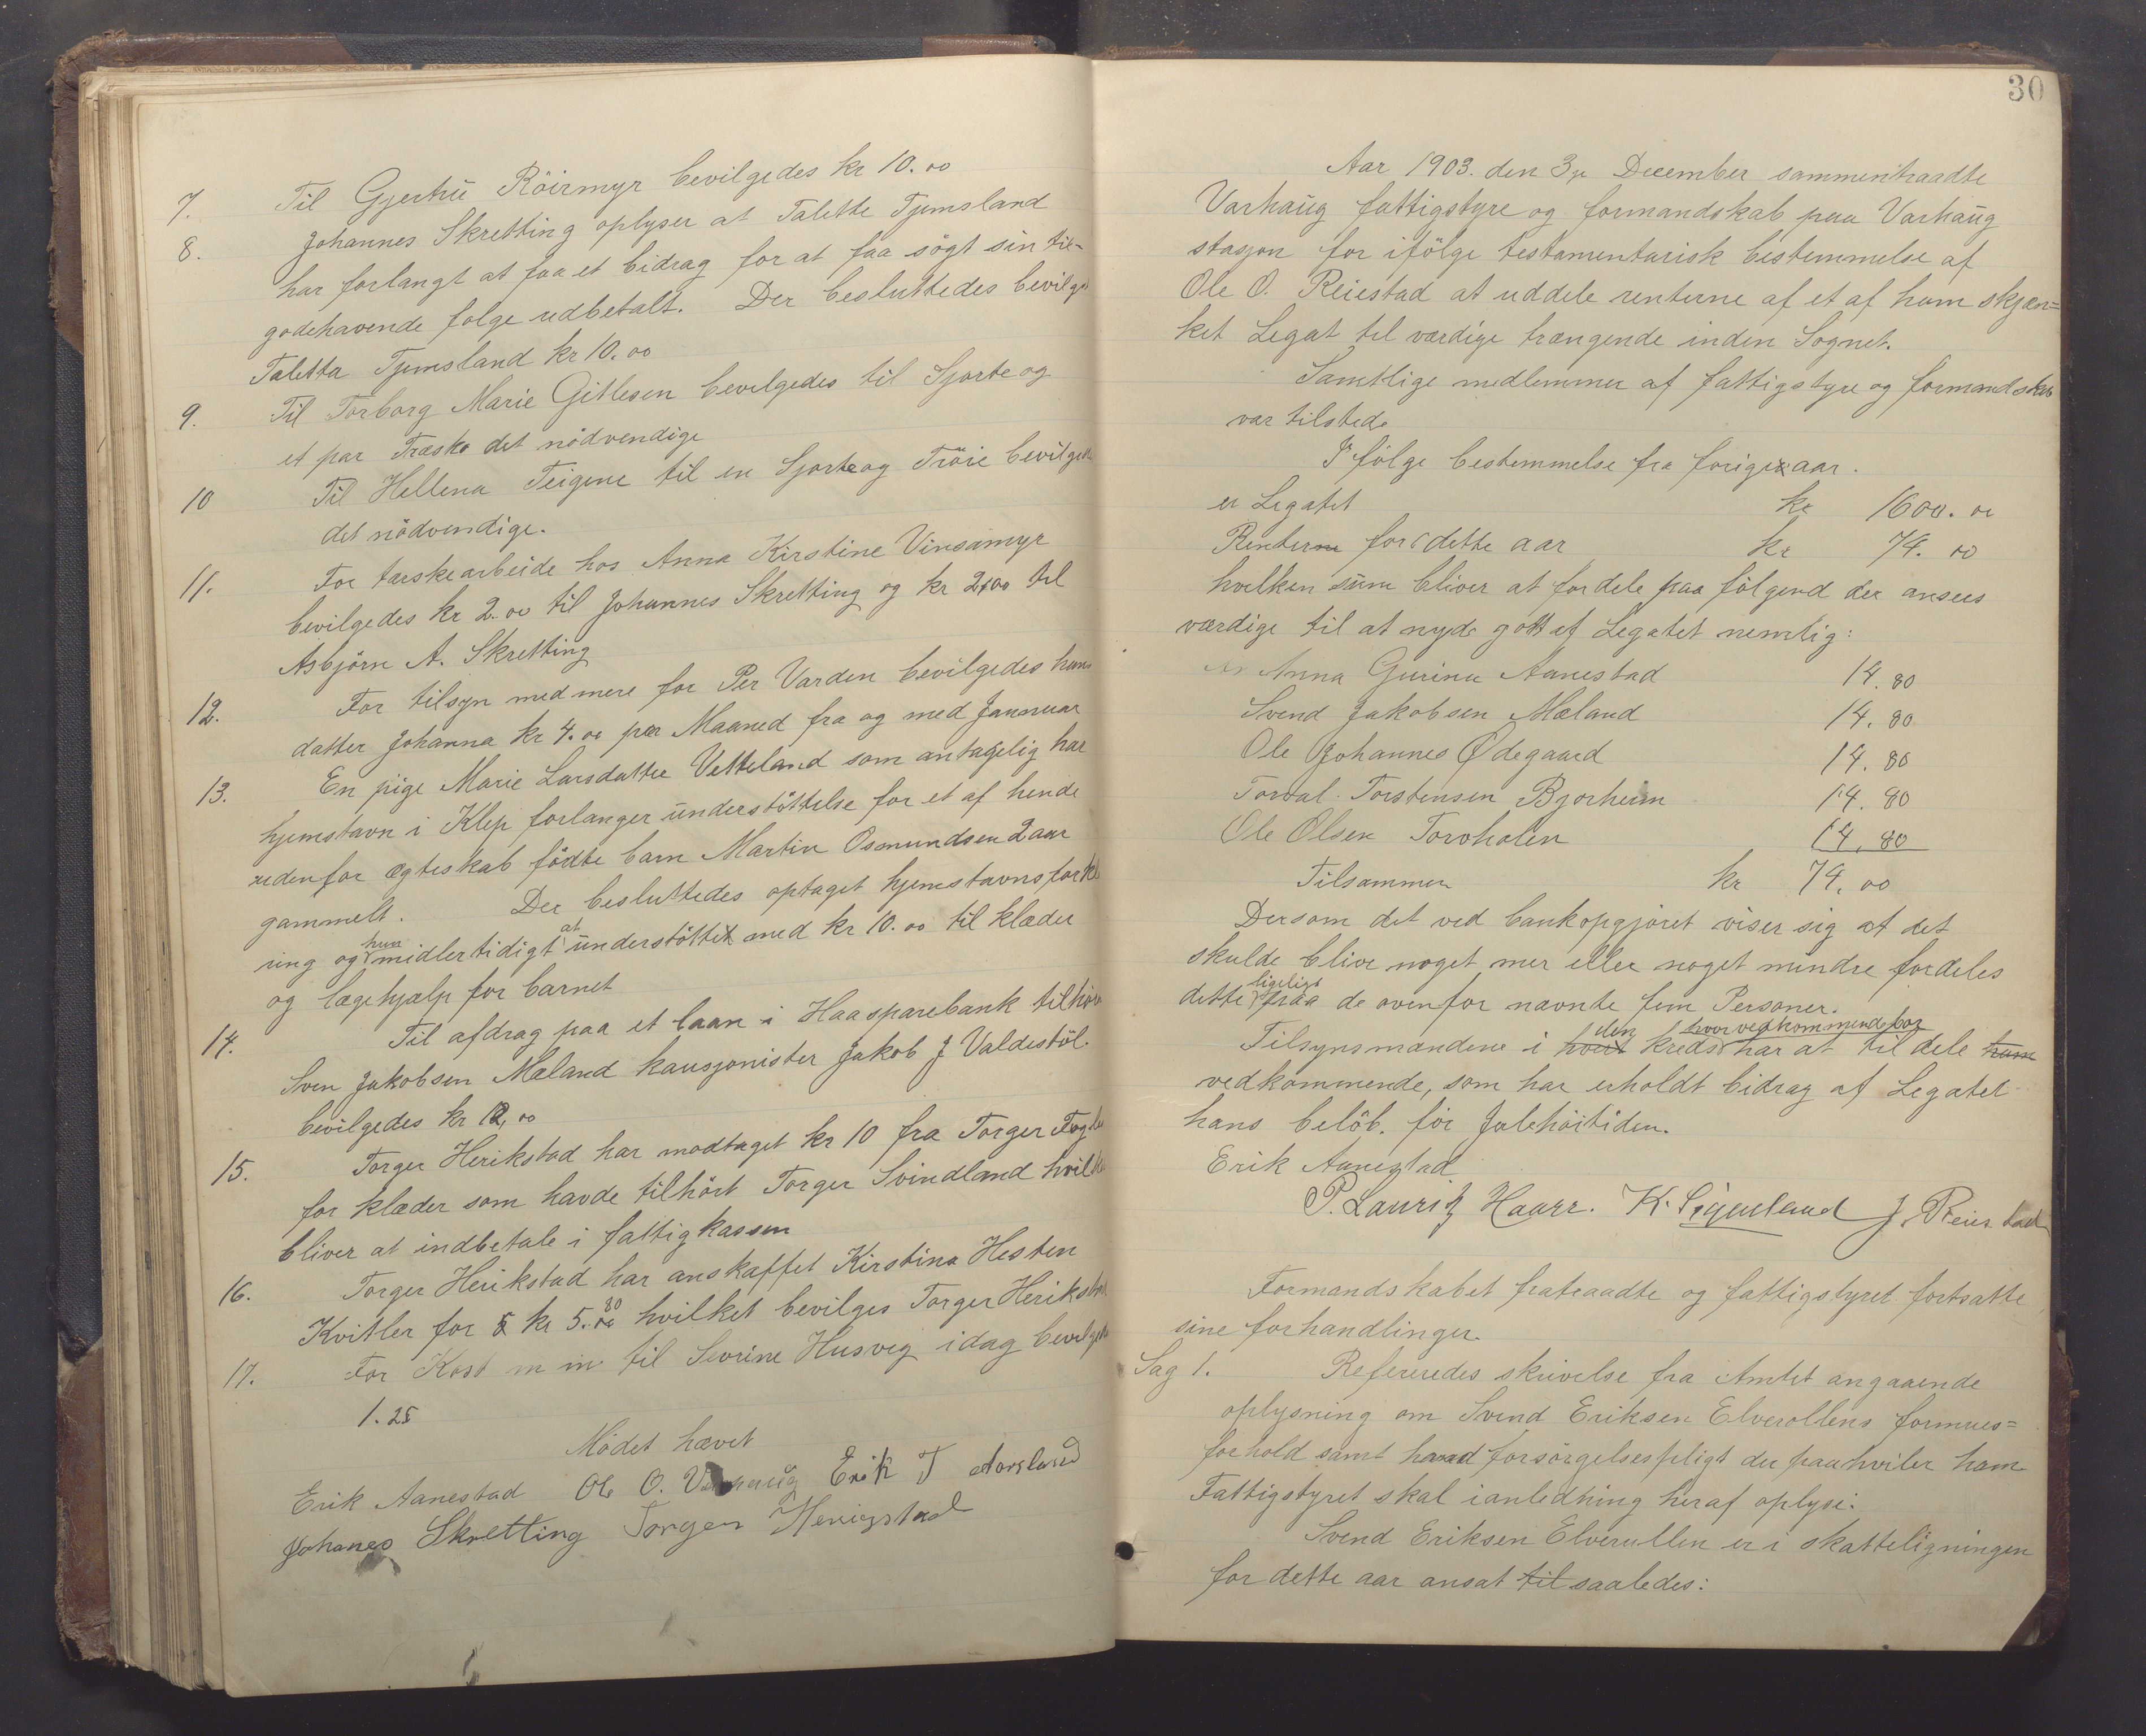 7. Til Gjertrü Röirmyr bevilgedes kr 10.00
8. Johannes Skretting oplyser at Talette Tjemsland
har forlangt at faa et bidrag for at faa sögt sin til-
godehavende folge udbetalt. Der besluttedes bevilget
Taletta Tjemsland kr 10.00
9. Til Torborg Marie Gitlesen bevilgedes til Sjorte og
et par Træsko det nödvendige
10 Til Hellena Teigene til en Sjorte og Tröie bevilgedes
det nödvendige.
11. For tærskearbeide hos Anna Kirstine Vinsamyr
bevilgedes kr 2.00 til Johannes Skretting og kr 2,00 til
Asbjörn A. Skretting
12. For tilsyn med mere for Per Varden bevilgedes hans
datter Johanna kr 4.00 per Maaned fra og med Januar
13. En pige Marie Larsdatter Vetteland som antagelig har
hjemstavn i Klep forlanger ünderstöttelse for et af hende
udenfor ægteskab födte barn Martin Osmundsen 2 aar
gammelt. Der besluttedes optaget hjemstavnsforkla
ring og hun midlertidigt at ünderstöttet med kr 10.00 til klæder
og lægehjælp for barnet
14. Til afdrag paa et laan i Haasparebank tilhöre
Sven Jakobsen Mæland kausjonister Jakob J Valdestöl.
bevilgedes kr 12,00
15. Torger Herikstad har modtaget kr 10 fra Torger
for klæder som havde tilhört Torger Svindland hvilke
bliver at indbetale i fattigkassen
16. Torger Herikstad har anskaffet Kirstina Hesten
Kvitler for kr 5.80 hvilket bevilges Torger Herikstad
17. For Kost m m til Sevrine Husveg idag bevilgedes
1.25
Mödet hævet
Erik Aanestad Ole O. Varhaüg Erik T Aarsland
Johanes Skretting Torger Herigstad
30
Aar 1903. den 3je December sammentraadte
Varhaüg fattigstyre og formandskab paa Varhaüg
stasjon for ifölge testamentarisk bestemmelse af
Ole O. Reiestad at uddele renterne af et af ham skjæn=
ket Legat til værdige trængende inden Sognet.
Samtlige medlemmer af fattigstyre og formandskab
var tilstede
Ifölge bestemmelse fra forige aar.
er Legatet kr 1600.00
Renterne for dette aar kr 74.00
hvilken süm bliver at fordele paa fölgend der ansees
værdige til at nyde gott af Legatet nemlig:
Anna Gurina Aanestad 14.80
Svend Jakobsen Mæland 14.80
Ole Johannes Ødegaard 14.80
Torval Torstensen Bjorheim 14.80
Ole Olsen Torvholen 14,80
Tilsammen kr 74,00
Dersom det ved bankopgjöret viser sig at det
skulde blive noget mer eller noget mindre fordeles
dette ligeligt paa de ovenfor nævnte fem Personer.
Tilsynsmændene i hver den kreds hvor vedkommende bor har at til dele ham
vedkommende, som har erholdt bidrag af Legatet
hans belöb. för Julehöitiden.
Erik Aanestad
P. Lauritz Haarr. K. Sigueland J. Reiestad
Formandskabet fratraadte og fattigstyret fortsatte
sine forhandlinger.
Sag 1. Refereredes skrivelse fra Amtet angaaende
oplysning om Svend Eriksen Elverollens formues=
forhold samt hvad forsörgelsespligt der paahviler ham
Fattigstyret skal ianledning heraf oplyse:
Svend Eriksen Elverullen er i skatteligningen
for dette aar ansat til saaledes: